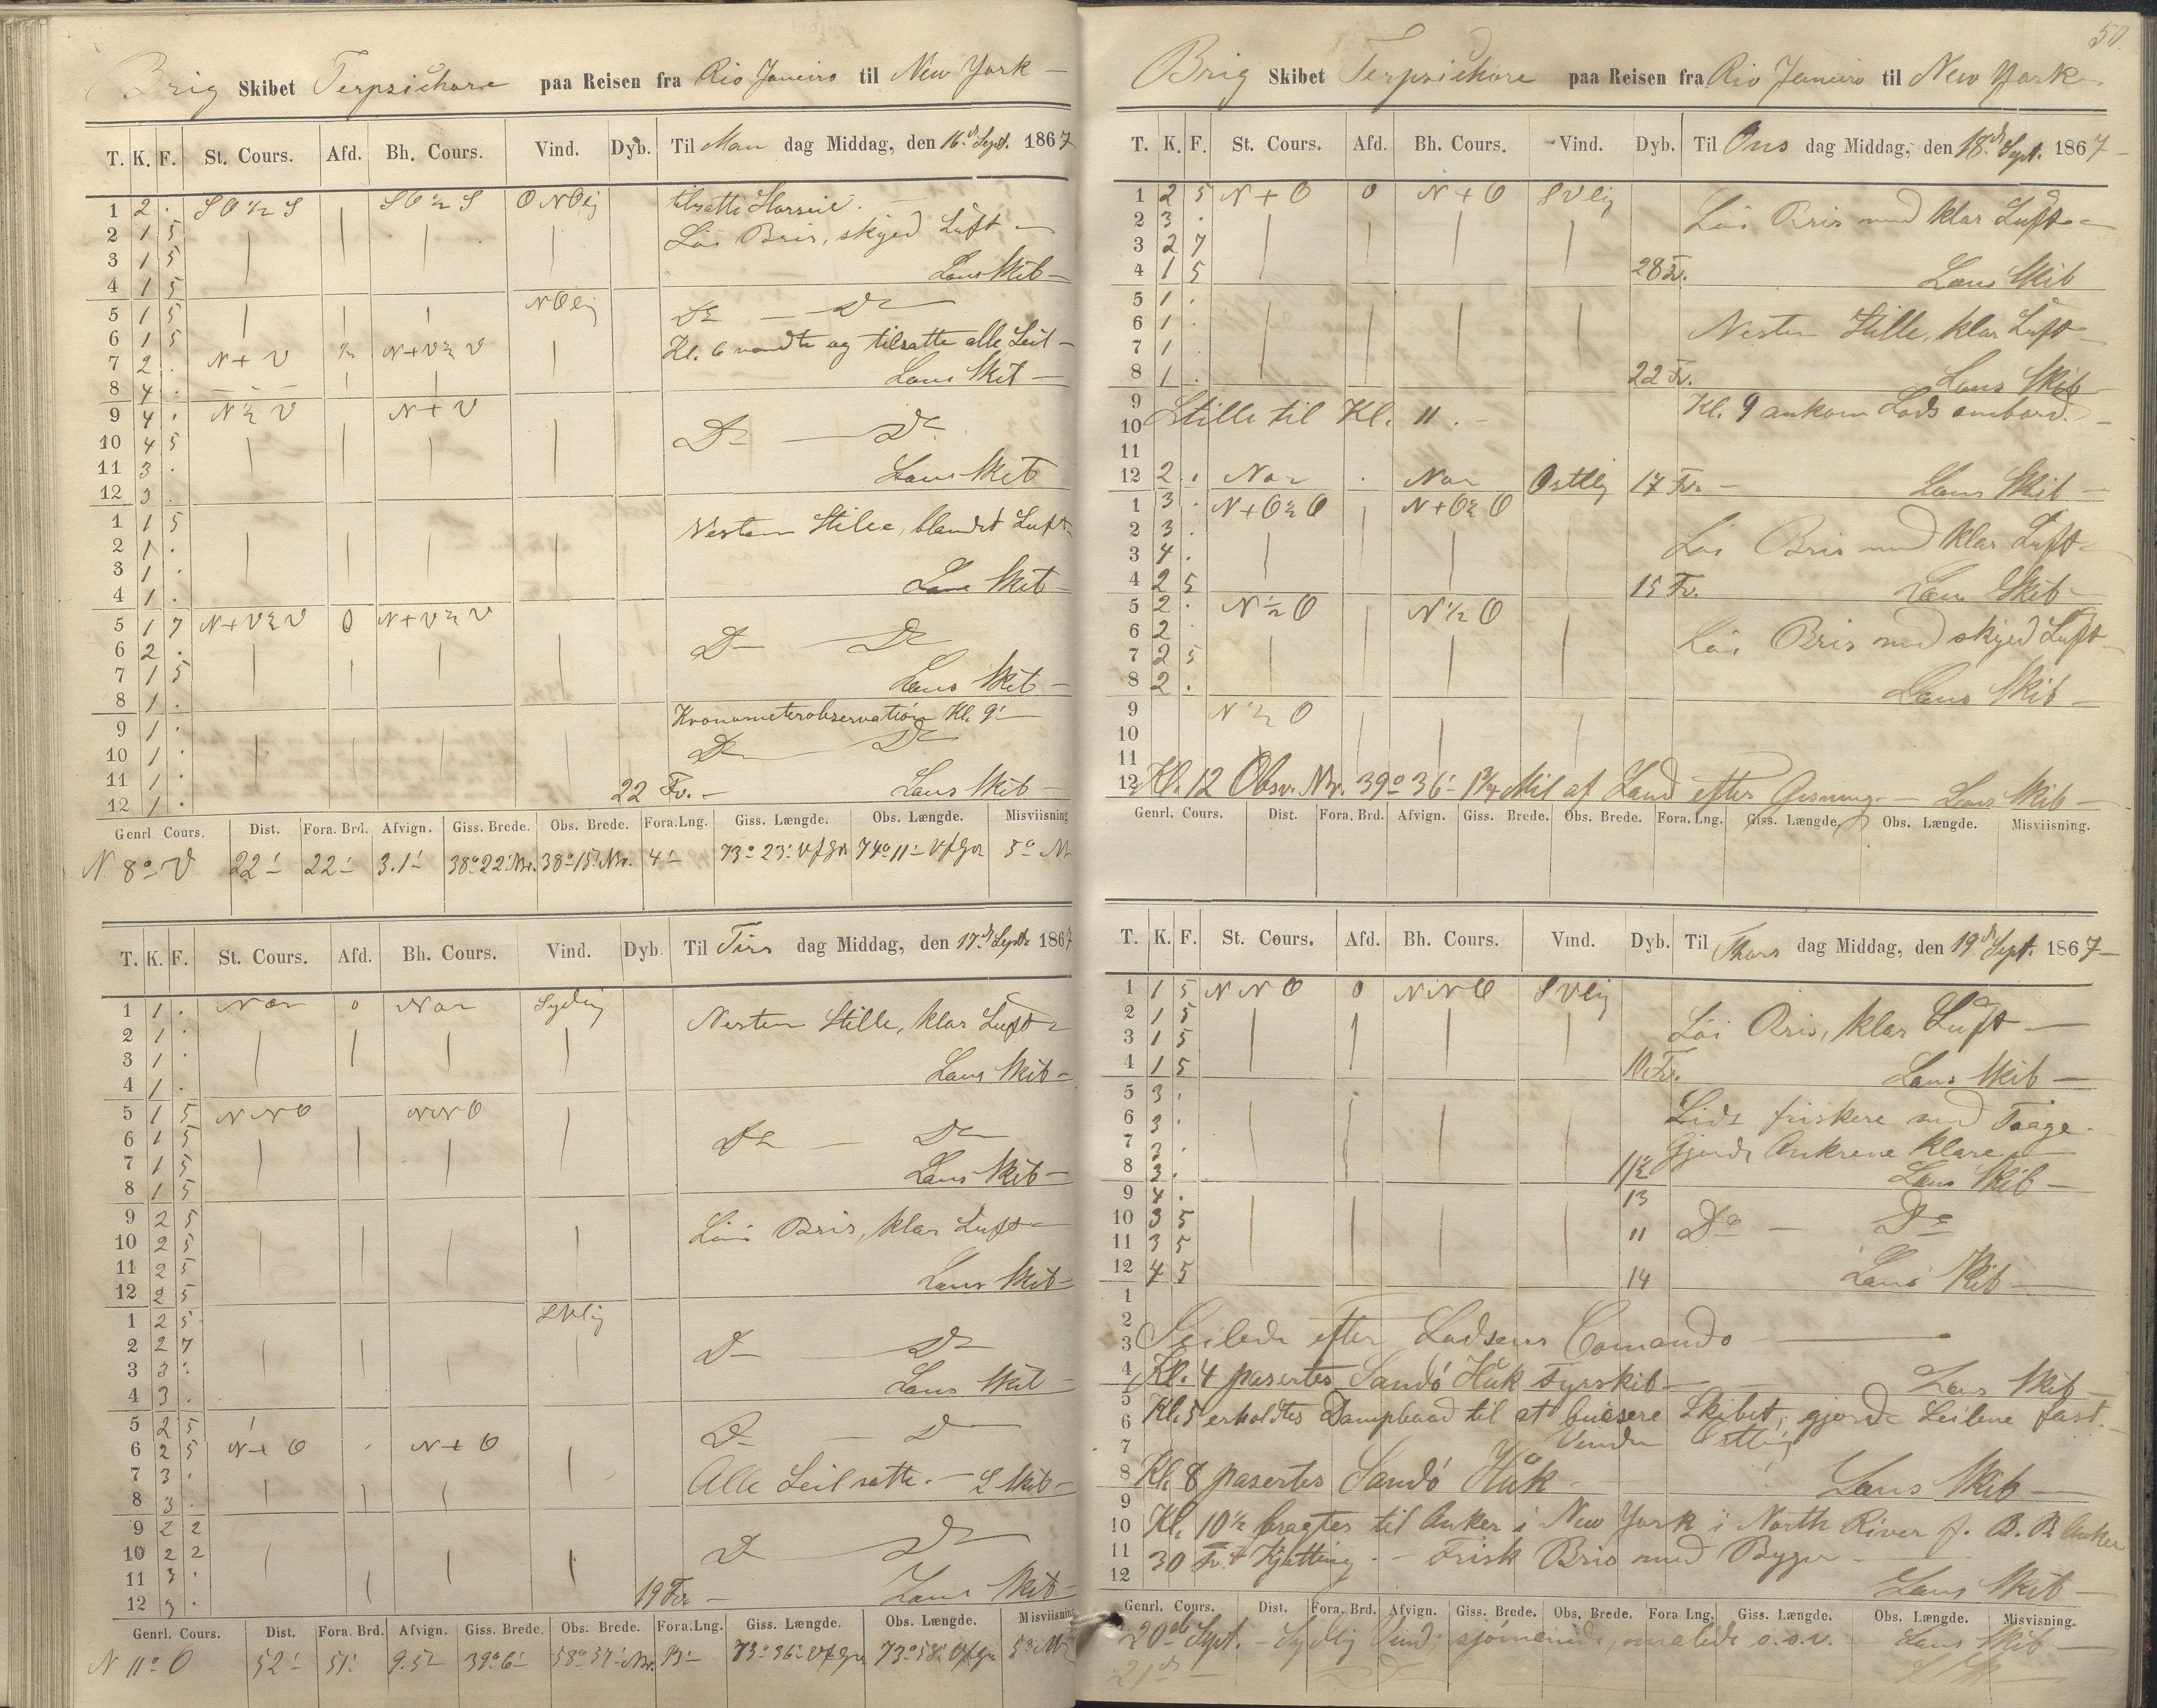 Brig Skibet Terpsichore paa Reisen fra Rio Janeiro til New York
T. K. F. St. Cours. Afd. Bh. Cours. Vind. Dyb. Til Man dag Middag, den 16d Sept. 1867
1 2 . SO ½ S SO ½ S ONOlig tilsatte
2 1 5 Löi Bris, skyed Luft
3 1 5
4 1 5 Læns Skib
5 1 5 NOlig Do Do
6 1 5 Kl. 6 vendte og tilsatte alle Seil
7 2 . N + V ½ N+V½V
8 4 . Læns Skib
9 4 . N ½ V N + V
10 4 5 Do Do
11 3 .
12 3 . Læns Skib
1 1 5 Nesten Stille, blandet Luft
2 1 .
3 1 .
4 1 . Læns Skib
5 1 7 N+V½V 0 N+V½V
6 2 . Do Do
7 1 5
8 1 . Læns Skib
9 1 . Kronometerobservation Kl. 9
10 1 . Do Do
11 1 .
12 1 . 22 Fv. Læns Skib
Genrl. Cours. Dist. Fora. Brd. Afvign. Giss. Brede. Obs. Brede. Fora. Lng. Giss. Længde. Obs. Længde. Misviisning
N 8° V 22' 22' 3.1' 38°22' Nr. 38°15' Nr. 4' 73° 23' Vf Gr 74° 11' Vf Gr 5°
T. K. F. St. Cours. Afd. Bh. Cours. Vind. Dyb. Til Tirs dag Middag, den 17d Septbr 1867
1 1 . Nor 0 Nor Sydlig
2 1 . Nesten Stille, klar Luft
3 1 .
4 1 . Læns Skib
5 1 5 NNO NNO
6 1 5 Do Do
7 1 5
8 1 5 Læns Skib
9 2 5 Löi Bris, klar Luft
10 2 5
11 2 5
12 2 5 Læns Skib
1 2 5 SVlig
2 2 7 Do Do
3 3 .
4 3 . Læns Skib
5 2 5 Do Do
6 2 5 N + O N + O
7 3 . Alle Seil satte. L Skib
8 3 .
9 2 2
10 2 2 Do Do
11 3 .
12 3 . 19 Fv. Læns Skib
Genrl. Cours. Dist. Fora. Brd. Afvign. Giss. Brede. Obs. Brede. Fora. Lng. Giss. Længde. Obs. Længde. Misviisning
N 11° O 52' 51' 9.5 39°6' 38° 57' Nr. 13' 73° 36' Vf Gr 73° 58' Vf Gr 5°
50.
Brig Skibet Terpsichore paa Reisen fra Rio Janeiro til New York
T. K. F. St. Cours. Afd. Bh. Cours. Vind. Dyb. Til Ons dag Middag, den 18d Sept. 1867
1 2 5 N + O 0 N + O SVlig
2 3 . Löi Bris med klar Luft
3 2 7
4 1 5 28 Fv. Læns Skib
5 1 .
6 1 . Nesten Stille, klar Luft
7 1 .
8 1 . 22 Fv. Læns Skib
9 Kl. 9 ankom Lods ombord.
10 Stille til Kl. 11.
11
12 2 . Nor . Nor Ostlig 17 Fv. Læns Skib
1 3 . N+O½O N+O½O
2 3 . Löi Bris med klar Luft
3 4 .
4 2 5 15 Fv. Læns Skib
5 2 . N ½ O N ½ O
6 2 . Löi Bris med skyed Luft
7 2 5
8 2 . Læns Skib
9 N ½ O
10
11
12 Kl. 12 Obsv. Nr. 39° 36' 1¾ Mil af Land efter Gisning. Læns Skib
Genrl. Cours. Dist. Fora. Brd. Afvign. Giss. Brede. Obs. Brede. Fora. Lng. Giss. Længde. Obs. Længde. Misviisning.
T. K. F. St. Cours. Afd. Bh. Cours. Vind. Dyb. Til Thors dag Middag, den 19d Sept. 1867
1 1 5 NNO 0 NNO SVlig
2 1 5 Löi Bris, klar Luft
3 1 5
4 1 5 10 Fv. Læns Skib
5 3 . Lidt friskere med Taage.
6 3 .
7 3 . Gjorde Ankrene klare
8 3 . 11½ Læns Skib
9 4 . 13
10 3 5 11 Do Do
11 3 5
12 4 5 14 Læns Skib
1
2
3 Seilede efter Lodsens Comando
4 Kl. 4 pasertes Sandö Huk Fyrskib Læns Skib
5 Kl. 5 erholdtes Dampbaad til at bucsere Skibet, gjorde Seilene fast.
6
7 Vinden Ostlig
8 Kl. 8 pasertes Sandö Huk Læns Skib
9
10 Kl. 10½ bragtes til Anker i New York i North River f. B. B. Anker
11 30 Fv. Kjætting. Frisk Bris med Byger
12 Læns Skib
Genrl. Cours. Dist. Fora. Brd. Afvign. Giss. Brede. Obs. Brede. Fora Lng. Giss. Længde. Obs. Længde. Misvisning.
20de Sept. Sydlig Vind, malede o.s.v. Læns Skib
21de Do